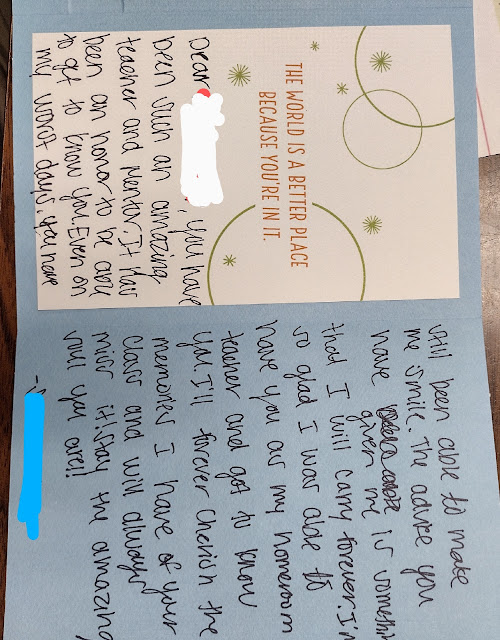 THE WORLD IS A BETTER PLACE
BECAUSE YOU'RE IN IT.
Dear , You have
been such an amazing
teacher and mentor. It has
been an honor to be able
to get to know you. Even on
my worst days, you have
still been able to make
me smile. The advice you
have given me is somethin
that I will carry forever. I'm
so glad I was able to
have you as my homeroom
teacher and got to know
you. I'll forever cherish the
memories I have of your
class and will always
miss it! Stay the amazing
soul you are!!